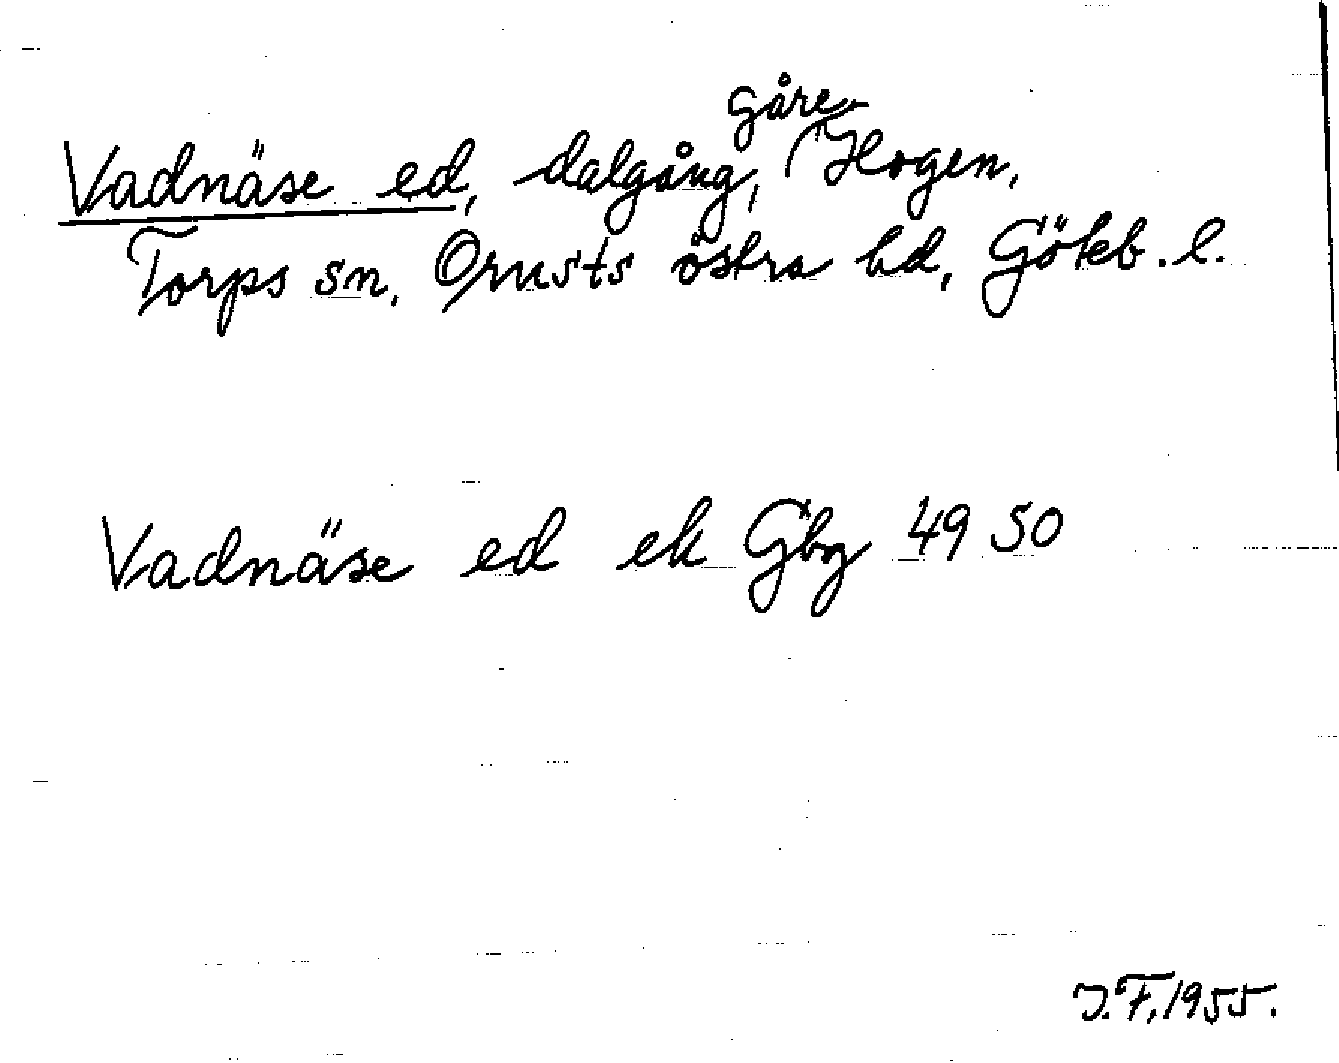 Vadnäse ed, dalgång, Gåre Hogen,
Torps sn, Orusts östra hd, Göteb. l.
Vadnäse ed ek Gbg 49 50
J.F. 1955.